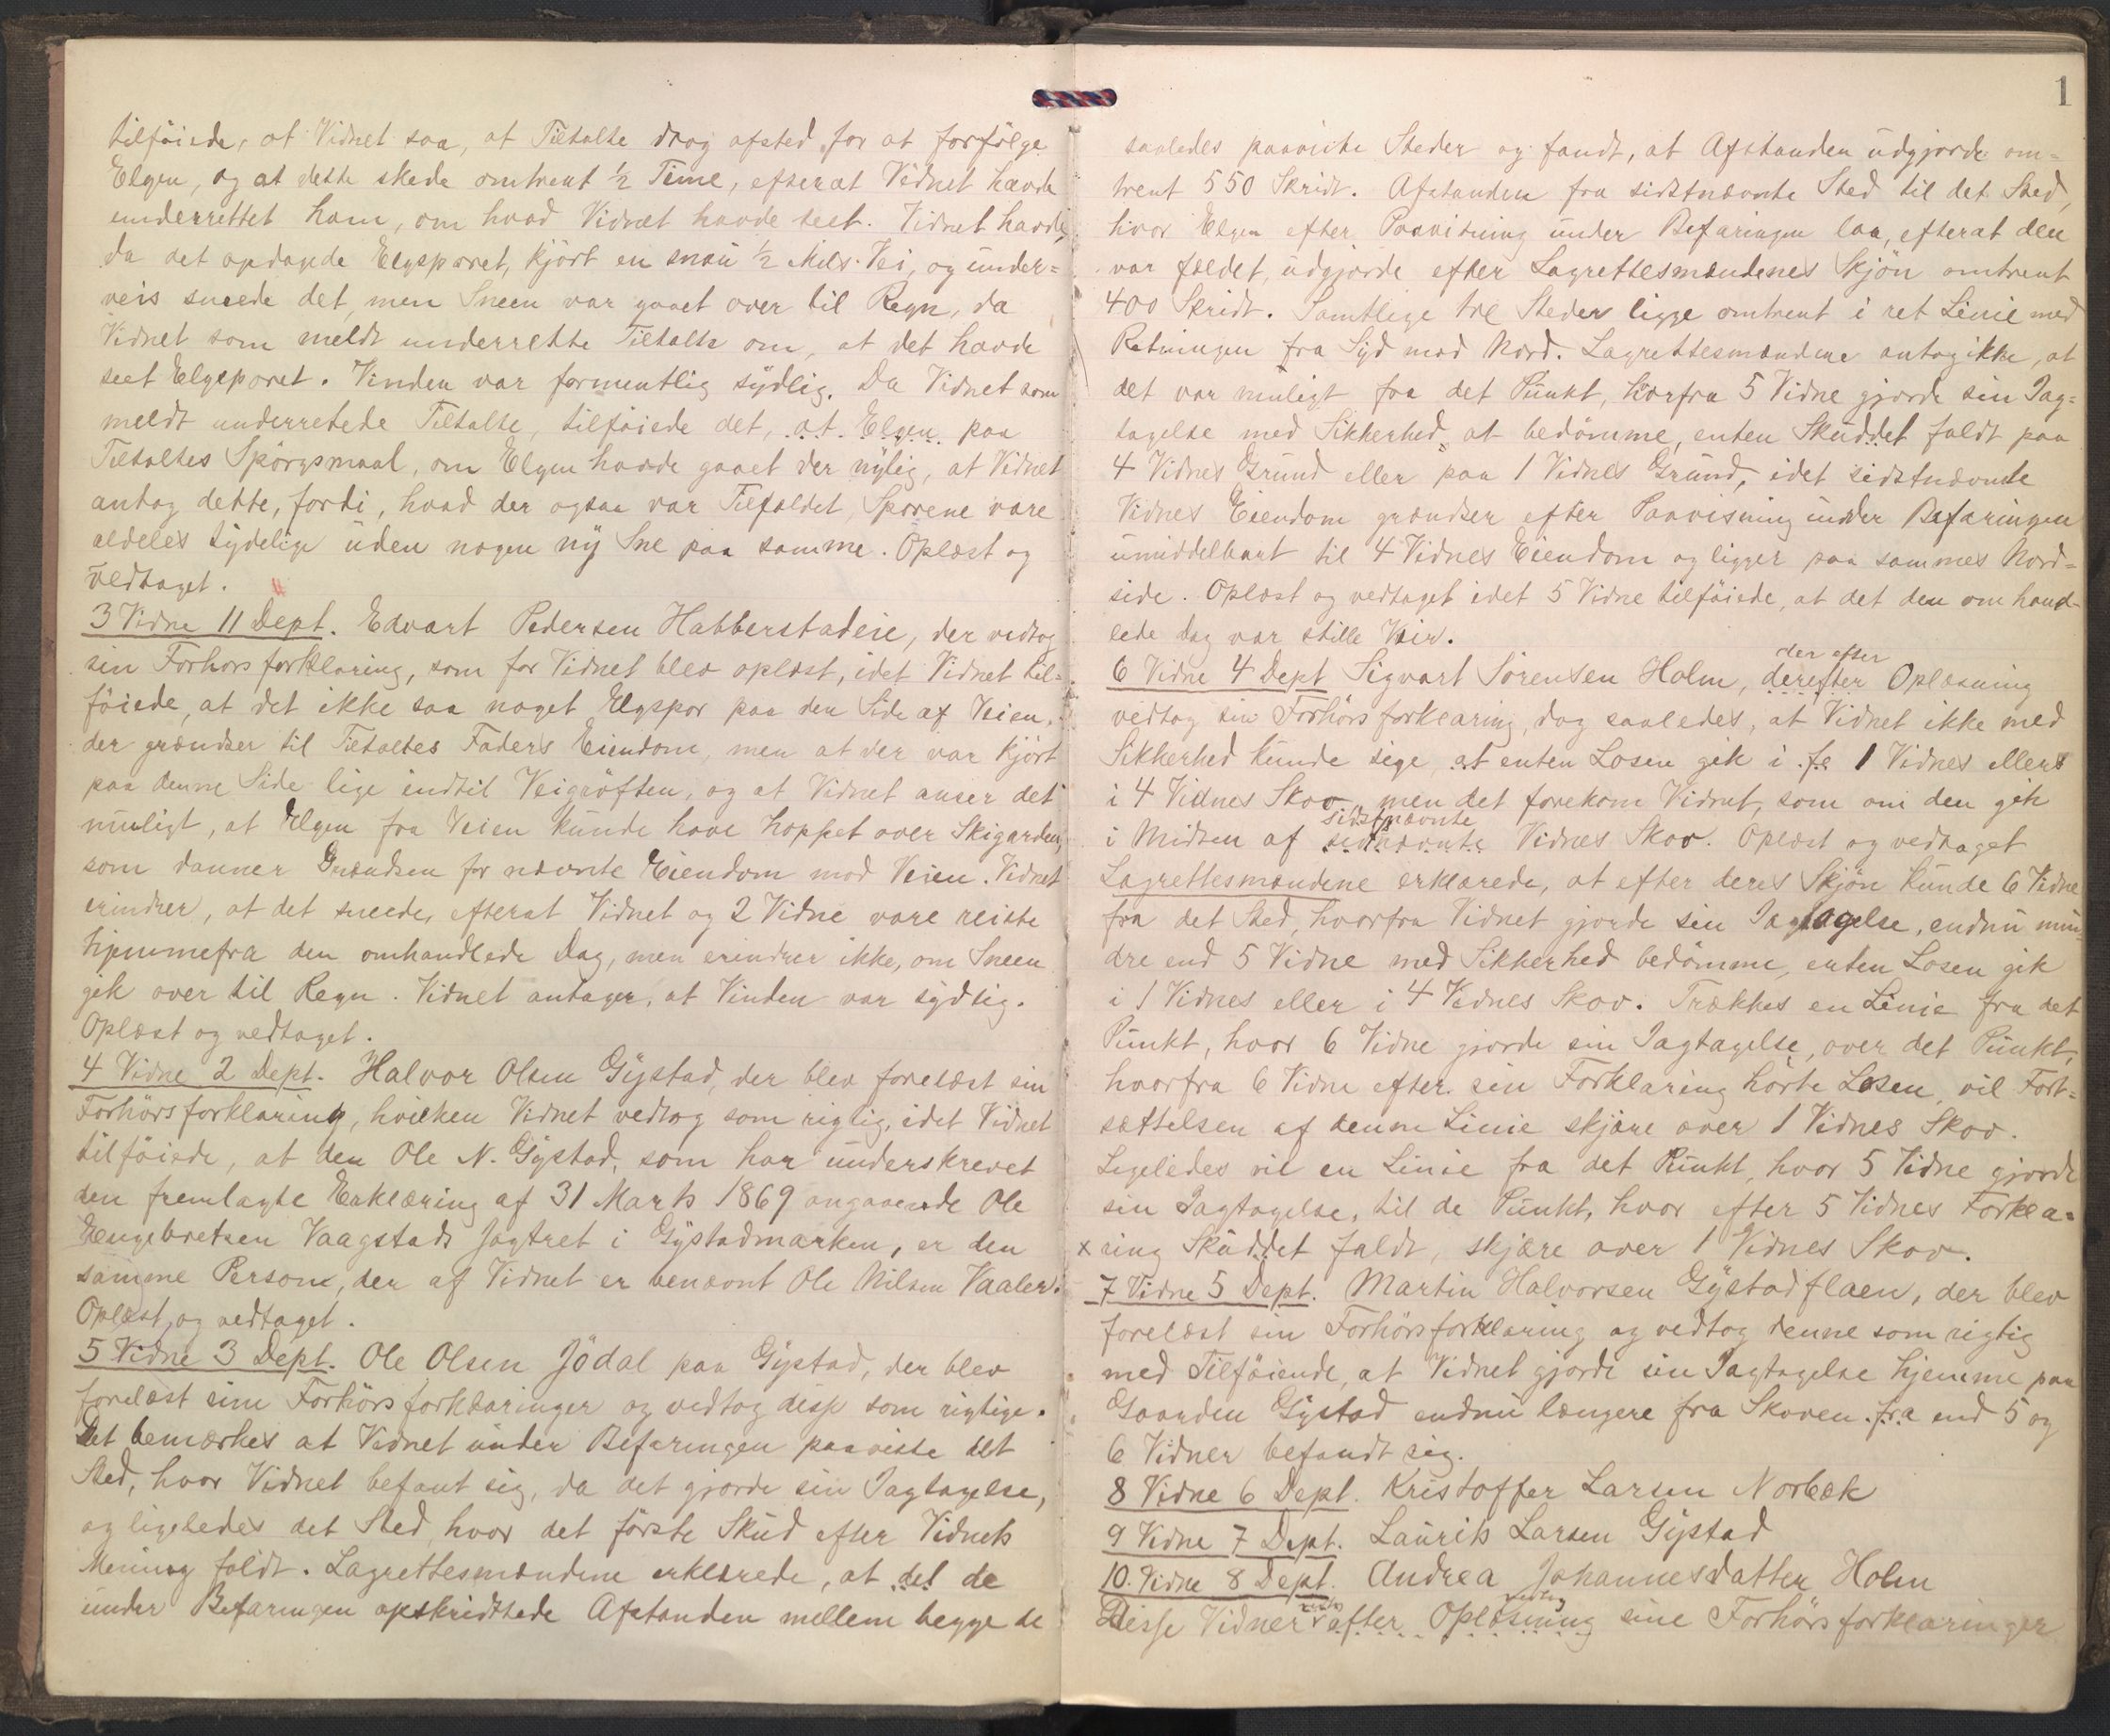 tilføiede, at Vidnet saa, at Tiltalte drog afsted for at forfølge
Elgen, og at dette skede omtrent ½ Time, efterat Vidnet havde
underrettet ham, om hvad Vidnet havde seet. Vidnet havde,
da det opdagede Elgsporet, kjørt en snau ½ Mils Vei, og under=
veis sneede det, men Sneen var gaaet over til Regn, da
Vidnet som meldt underrette Tiltalte om, at det havde
seet Elgsporet. Vinden var formentlig sydlig. Da Vidnet som
meldt underretede Tiltalte, tilføiede det, at Elgen paa
Tiltaltes Spørgsmaal, om Elgen havde gaaet der nylig, at Vidnet
antog dette, fordi, hvad der ogsaa var Tilfældet, Sporene vare
aldeles tydelige uden nogen ny Sne paa samme. Oplæst og
vedtaget.
3 Vidne 11 Dept. Edvart Pedersen Habberstadeie, der vedtog
sin Forhørsforklaring, som for Vidnet blev oplæst, idet Vidnet til=
føiede, at det ikke saa noget Elgspor paa den Side af Veien,
der grændser til Tiltaltes Faders Eiendom, men at der var kjørt
paa denne Side lige indtil Veigrøften, og at Vidnet anser det
muligt, at Elgen fra Veien kunde have hoppet over Skigarden,
som danner Grændsen for nævnte Eiendom mod Veien. Vidnet
erindrer, at det sneede, efterat Vidnet og 2 Vidne vare reiste
hjemmefra den omhandlede Dag, men erindrer ikke, om Sneen
gik over til Regn. Vidnet antager, at Vinden var sydlig.
Oplæst og vedtaget.
4 Vidne 2 Dept. Halvor Olsen Gystad, der blev forelæst sin
Forhørsforklaring, hvilken Vidnet vedtog som rigtig, idet Vidnet
tilføiede, at den Ole N. Gystad, som har underskrevet
den fremlagte Erklæring af 31 Marts 1869 angaaende Ole
Engebretsen Vaagstads Jagtret i Gystadmarken, er den
samme Person, der af Vidnet er benævnt Ole Nilsen Vaaler.
Oplæst og vedtaget.
5 Vidne 3 Dept. Ole Olsen Jödal paa Gystad, der blev
forelæst sine Forhørsforklaringer og vedtog disse som rigtige.
Det bemærkes at Vidnet under Befaringen paaviste det
Sted, hvor Vidnet befant sig, da det gjorde sin Iagtagelse,
og ligeledes det Sted, hvor det første Skud efter Vidnets
Mening faldt. Lagrettesmændene erklærede, at det de
under Befaringen opskridttede Afstanden mellem begge de
1
saaledes paaviste Steder og fandt, at Afstanden udgjorde om=
trent 550 Skridt. Afstanden fra sidstnævnte Sted til det Sted,
hvor Elgen efter Paavisning under Befaringen laa, efterat den
var fældet, udgjorde efter Lagrettesmændenes Skjøn omtrent
400 Skridt. Samtlige tre Steder ligge omtrent i ret Linie med
Retningen fra Syd mod Nord. Lagrettesmændene antog ikke, at
det var muligt fra det Punkt, hvorfra 5 Vidne gjorde sin Iag=
tagelse med Sikkerhed at bedømme, enten Skuddet faldt paa
4 Vidnes Grund eller paa 1 Vidnes Grund, idet sidstnævnte
Vidnes Eiendom grændser efter Paavisning under Befaringen
umiddelbart til 4 Vidnes Eiendom og ligger paa sammes Nord=
side. Oplæst og vedtaget idet 5 Vidne tilføiede, at det den omhand=
lede Dag var stille Veir.
6 Vidne 4 Dept Sigvart Sørensen Holm, derefter der efter Oplæsning
vedtog sin Forhørsforklaring, dog saaledes, at Vidnet ikke med
Sikkerhed kunde sige, at enten Losen gik i fe 1 Vidnes eller
i 4 Vidnes Skov, men det forekom Vidnet, som om den gik
i Midten af sidstnævnte Vidnes Skov. Oplæst og vedtaget
Lagrettesmændene erklærede, at efter deres Skjøn kunde 6 Vidne
fra det Sted, hvorfra Vidnet gjorde sin Iagtagelse, endnu min=
dre end 5 Vidne med Sikkerhed bedømme, enten Losen gik
i 1 Vidnes eller i 4 Vidnes Skov. Trækkes en Linie fra det
Punkt, hvor 6 Vidne gjorde sin Iagtagelse, over det Punkt,
hvorfra 6 Vidne efter sin Forklaring hørte Losen, vil Fort=
sættelsen af denne Linie skjære over 1 Vidnes Skov.
Ligeledes vil en Linie fra det Punkt, hvor 5 Vidne gjorde
sin Iagtagelse, til de Punkt, hvor efter 5 Vidnes Forkla=
x ring Skuddet faldt, skjære over 1 Vidnes Skov.
7 Vidne 5 Dept. Martin Halvorsen Gystadflaen, der blev
forelæst sin Forhørsforklaring og vedtog denne som rigtig
med Tilføiende, at Vidnet gjorde sin Iagtagelse hjemme paa
Gaarden Gystad endnu længere fra Skoven fra end 5 og
6 Vidner befandt sig.
8 Vidne 6 Dept. Kristoffer Larsen Norbæk
9 Vidne 7 Dept. Laurits Larsen Gystad
10. Vidne 8 Dept. Andrea Johannesdatter Holm
Disse Vidner vedtog efter Oplæsning vedtog sine Forhørsforklaringer